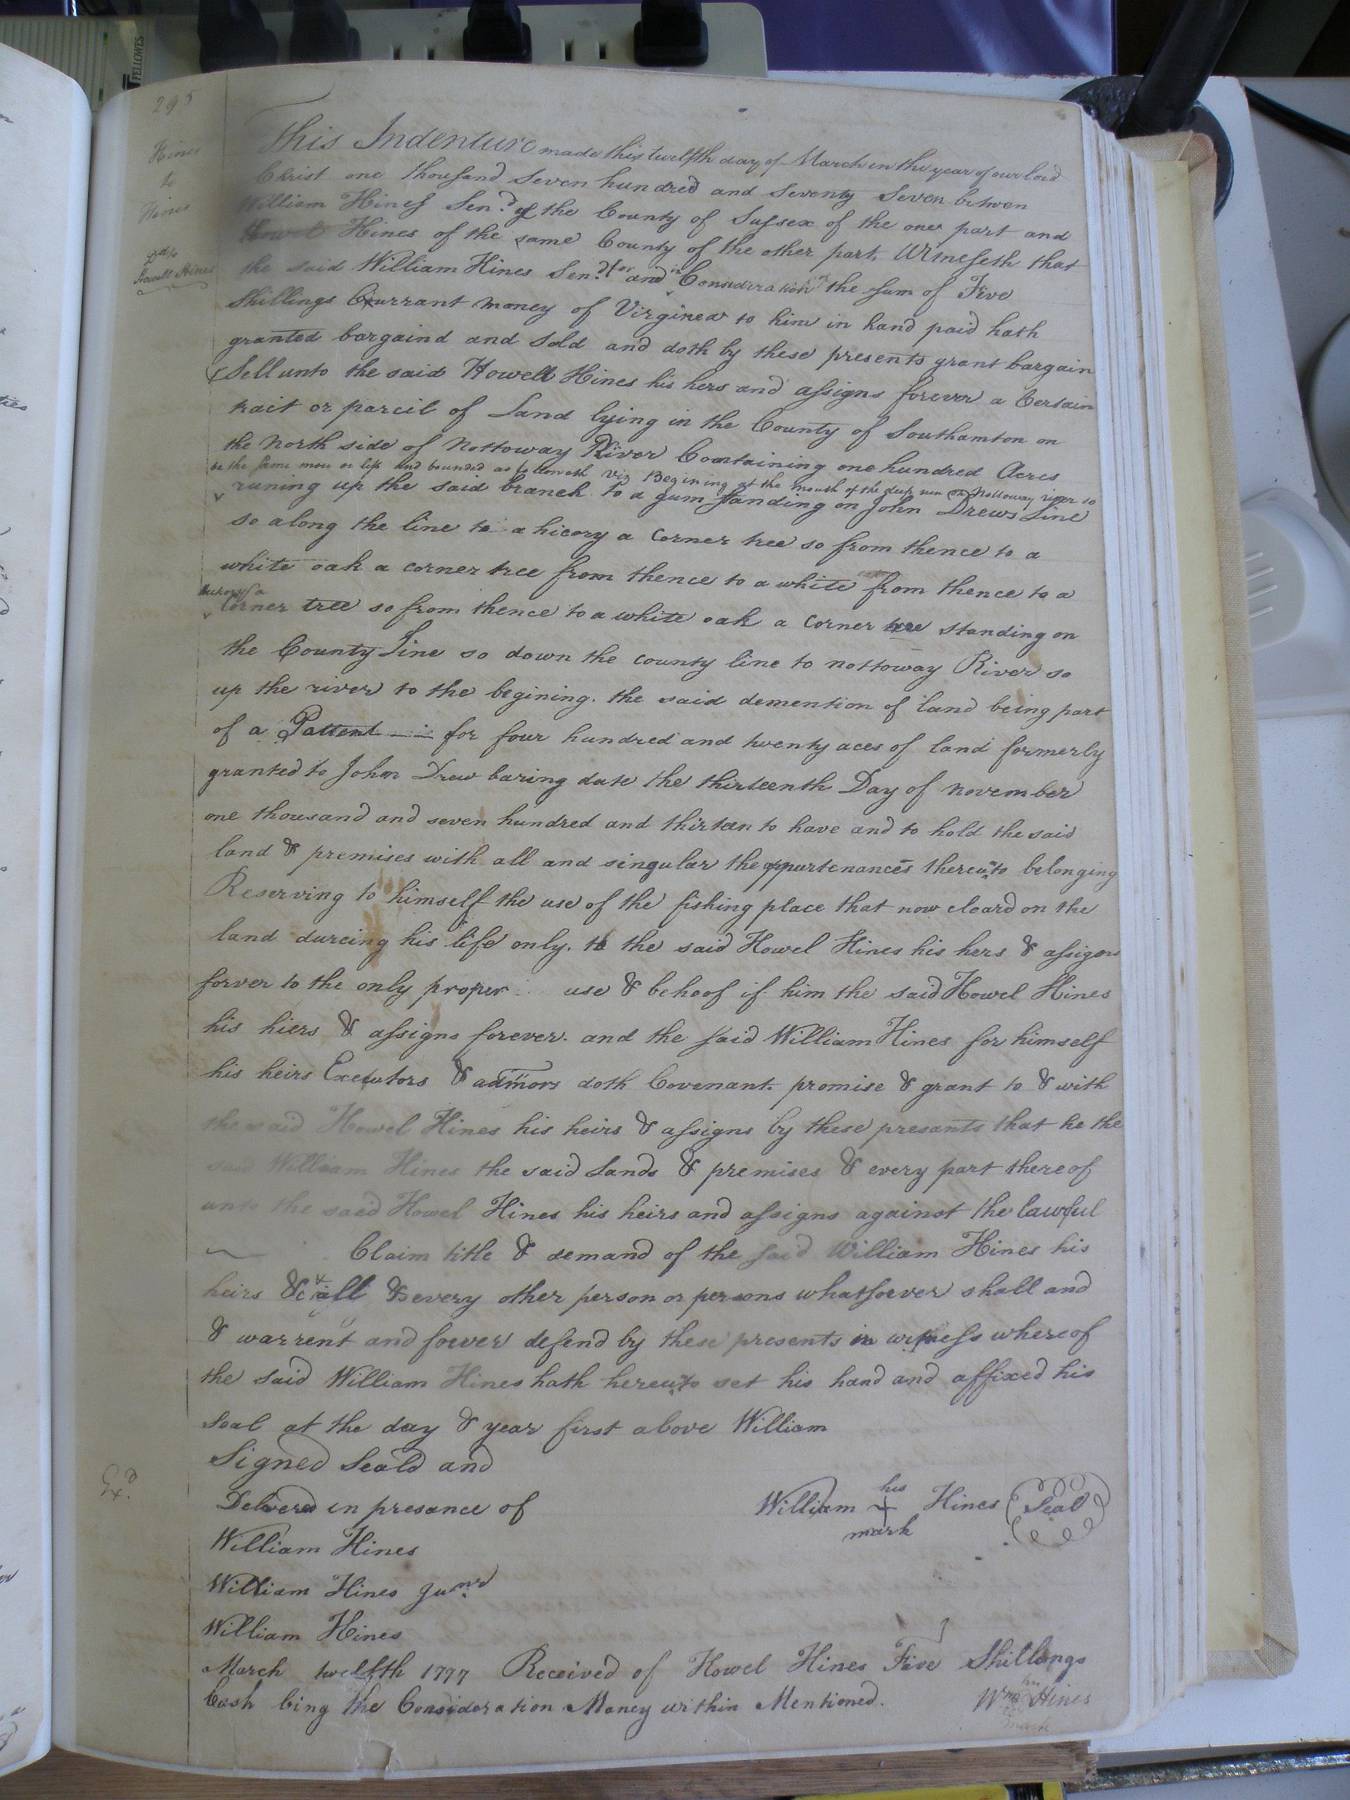 295
Hines
to
Hines
Howell Hines
This Indenture made this twelfth day of March in the year of our lord
Christ one thousand seven hundred and seventy seven betwen
William Hines Senr. of the County of Sussex of the one part and
Howel Hines of the same County of the other part Witnesseth that
the said William Hines Senr. for and in Consideration of the sum of Five
Shillings Currant money of Virginea to him in hand paid hath
granted bargaind and Sold and doth by these presents grant bargain
Sell unto the said Howell Hines his hers and assigns forever a Certain
trait or parcil of Land lying in the County of Southamton on
the North side of Nottoway River Containing one hundred Acres
be the same more or less and bounded as followeth Viz Begining at the mouth of the deep run on Nottoway river so
runing up the said branch to a gum standing on John Drews Line
so along the line to a hicory a corner tree so from thence to a
white oak a corner tree from thence to a white from thence to a
corner tree so from thence to a white oak a corner tree standing on
the County Line so down the county line to nottoway River so
up the river to the begining. the said demention of land being part
of a Pattent for four hundred and twenty aces of land formerly
granted to John Drew baring date the thirteenth Day of november
one thousand and seven hundred and thirteen to have and to hold the said
land & premises with all and singular the appurtenances thereunto belonging
Reserving to himself the use of the fishing place that now cleard on the
land dureing his life only. to the said Howel Hines his hers & assigns
forver to the only proper use & behoof if him the said Howel Hines
his hiers & assigns forever. and the said William Hines for himself
his heirs Executors & admors doth Covenant promise & grant to & with
the said Howel Hines his heirs & assigns by these presants that he the
said William Hines the said Lands & premises & every part thereof
unto the said Howel Hines his heirs and assigns against the lawful
Claim title & demand of the said William Hines his
heirs &c & all & every other person or persons whatsoever shall and
& warrent and foever defend by these presents in witness whereof
the said William Hines hath hereunto set his hand and affixed his
Seal at the day & year first above William
Signed Seald and
Exd.
Delivered in presance of
William his mark Hines Seal
William Hines
William Hines Junr
William Hines
March twelfth 1777 Received of Howel Hines Five Shillings
Cash being the Consideration Money within Mentioned.
Wm his mark Hines